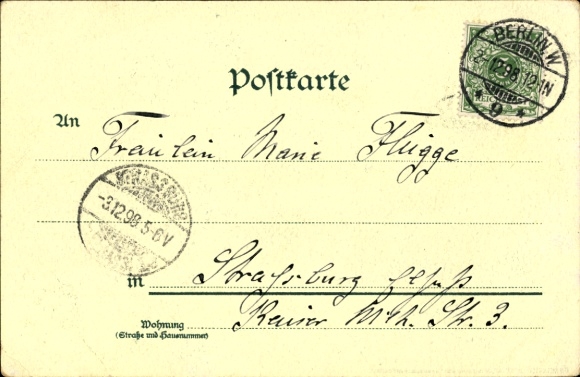 Postkarte
BERLIN.W.
2.12.98.12-1N
* 9 *
REICHSPOST
An Fräulein Marie Flügge
STRASSBURG
-3.12.98.5-6V
in Strassburg Elsass
Wohnung Kaiser Wilh. Str. 3.
(Straße und Hausnummer)